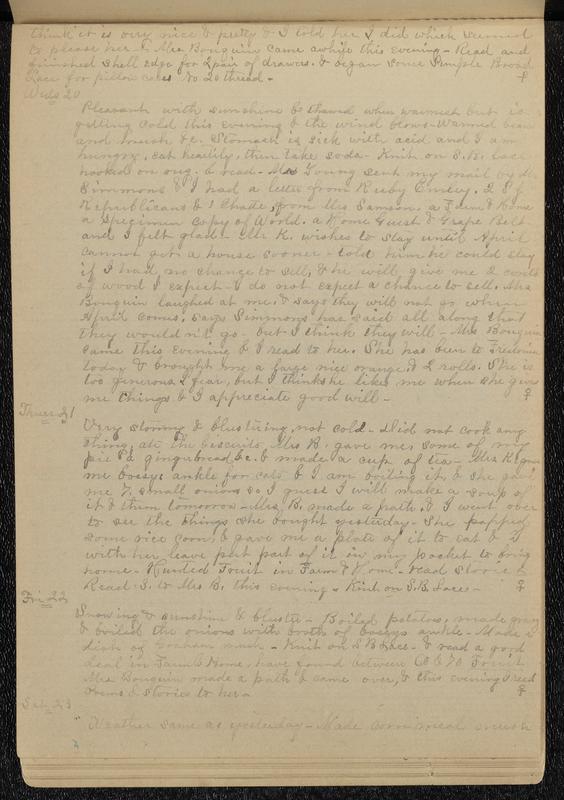 think it is very nice & pretty & I told her I did which seemed
to please her - & Mrs Bonguin came awhile this evening - Read and
finished shell edge for 2 pair of drawers. & began some Simple Broad
Lace for pillow cases No 20 thread -
Weds 20
Pleasant with sunshine & thawed when warmest but is
getting cold this evening & the wind blows - Warmed bean
and mush &c. Stomach is sick with acid and I am
hungry, eat heartily, then take soda - Knit on S.B. Lace
hooked on rug. & read - Mrs Young sent my mail by Mr
Simmons & I had a letter from Ruby Emery. 2 S.f
Republicans & 1 from Mrs Samson. a Farm & Home
a Specimen copy of World. a Home Guest & Grape Belt
and I felt glad - Mr K. wishes to stay until April
cannot get a house sooner - told him he could stay
if I had no chance to sell, & he will give me 2 cords
of wood I expect - I do not expect a chance to sell. Mrs
Bonguin laughed at me, & says they will not go when
April comes, says Simmons has said all along that
they wouldn't go - but I think they will - Mrs Bonguin
came this evening & I read to her. She has been to Fredonia
today & brought me a large nice orange & 2 rolls. She is
too generous I fear, but I think she likes me when she gives
me things & I appreciate good will -
Thurs 21
Very storming & blustering, not cold - Did not cook any
thing, ate the biscuits Mrs B. gave me, some of my
pie & gingerbread &c. & made a cup of tea - Mrs K gave
me bossys ankle for cats & I am boiling it, & she gave
me 7 small onions so I guess I will make a soup of
it & them tomorrow - Mrs B. made a path & I went over
to see the things she bought yesterday - She popped
some nice corn, & gave me a plate of it to eat & I
with her leave put part of it in my pocket to bring
home - Hunted Fruit in Farm & Home - Read Stories
Read S. to Mrs B. this evening - Knit on S.B. Lace -
Fri 22
Snowing & sunshine & bluster - Boiled potatoes, made gravy
& boiled the onions with broth of bossys ankle - Made a
dish of Graham mush - Knit on S B Lace - & read a good
deal in Farm & Home, have found between 60 & 70 Fruit
Mrs Bonguin made a path & came over, & this evening I read
Poems & stories to her -
Sat 23
Weather same as yesterday - Made cornmeal mush